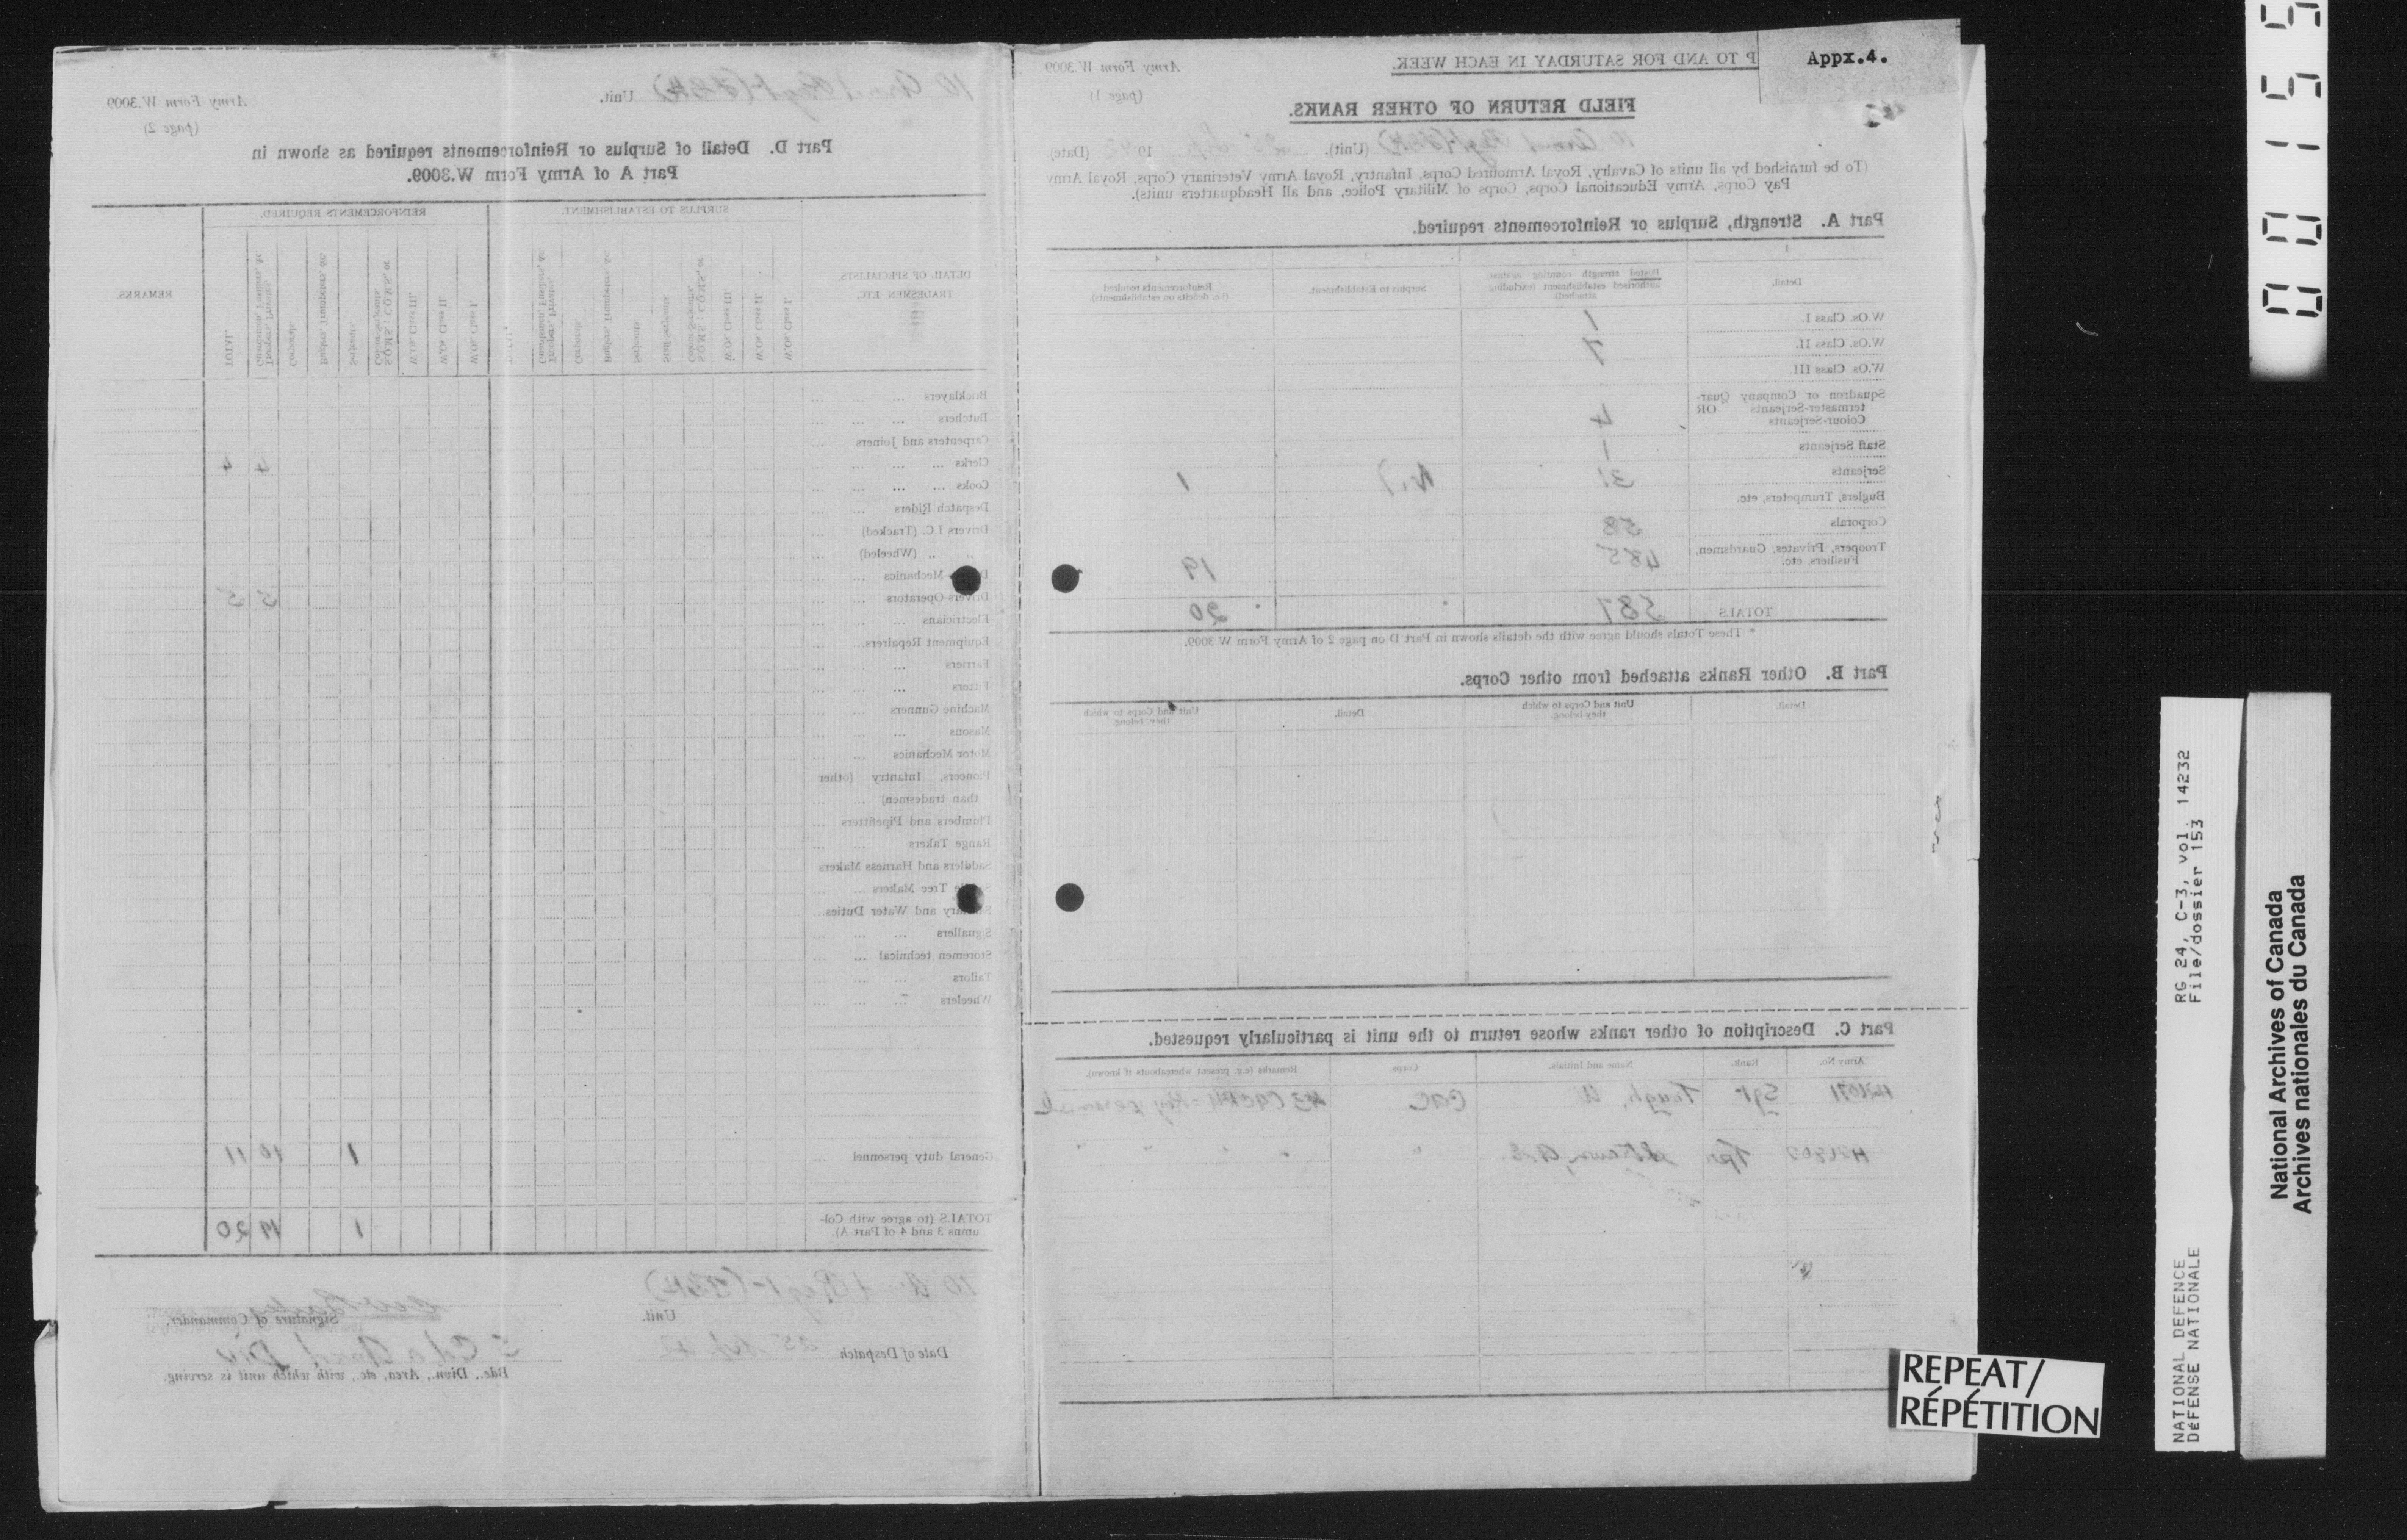 Appx.4.
P TO AND FOR SATURDAY IN EACH WEEK.
Army Form W.3009
(page 1)
FIELD RETURN OF OTHER RANKS.
(Unit). 19 (Date)
(To be furnished by all units of Cavalry, Royal Armoured Corps, Infantry, Royal Army Veterinary Corps, Royal Army
Pay Corps, Army Educational Corps, Corps of Military Police, and all Headquarters units).
Part A. Strength, Surplus or Reinforcements required.
1 2 4
Detail. Posted strength counting against authorised establishment (excluding attached) Surplus to Establishment. Reinforcements required (i.e. deficits on establishments).
W.Os. Class I. 1
W.Os. Class II. 7
W.Os. Class III
Squadron or Company Quar-
termaster-Serjeants OR
Colour-Serjeants 4
Staff Serjeants 1
Serjeants 31 Nil 1
Buglers, Trumpeters, etc.
Corporals 58
Troopers, Privates, Guardsmen,
Fusiliers, etc. 485 19
TOTALS 587 20
* These Totals should agree with the details shown in Part D on page 2 of Army Form W.3009.
Part B. Other Ranks attached from other Corps.
Detail Unit and Corps to which they belong. Detail. Unit and Corps to which they belong.
Part C. Description of other ranks whose return to the unit is particularly requested.
Army No. Rank. Name and Initials. Corps. Remarks (e.g. present whereabouts if known).
Sgt CAC
Tpr
10 Unit.
Army Form W.3009
(page 2)
Part D. Detail of Surplus or Reinforcements required as shown in
Part A of Army Form W.3009.
DETAIL OF SPECIALISTS,
TRADESMEN ETC.
SURPLUS TO ESTABLISHMENT.
REINFORCEMENTS REQUIRED.
REMARKS.
W.Os. Class I.
W.Os. Class II.
W.Os. Class III.
S.Q.M.S.; C.Q.M.S. or Colour-Serjeants.
Staff Serjeants.
Serjeants.
Buglers, Trumpeters, &c.
Corporals.
Troopers, Privates, Guardsmen, Fusiliers, &c.
W.Os. Class I.
W.Os. Class II.
W.Os. Class III.
S.Q.M.S.; C.Q.M.S. or Colour-Serjeants.
Serjeants.
Buglers, Trumpeters, &c.
Corporals.
Troopers, Privates, Guardsmen, Fusiliers, &c.
TOTAL.
Bricklayers
Butchers
Carpenters and Joiners
Clerks 4 4
Cooks
Despatch Riders
Drivers I.C. (Tracked)
,, ,, (Wheeled)
Mechanics
Drivers-Operators 5 5
Electricians
Equipment Repairers
Farriers
Fitters
Machine Gunners
Masons
Motor Mechanics
Pioneers, Infantry (other
than tradesmen)
Plumbers and Pipefitters
Range Takers
Saddlers and Harness Makers
Tree Makers
and Water Duties
Signallers
Storemen technical
Tailors
Wheelers
General duty personnel 1 10 11
TOTALS (to agree with Col-
umns 3 and 4 of Part A). 1 19 20
Unit.
Signature of Commander.
Date of Despatch 25
Cdn Armd Div
Bde., Divn., Area, etc., with which unit is serving.
REPEAT/
RÉPÉTITION
NATIONAL DEFENCE RG 24, C-3, vol. 14232
DéFENSE NATIONALE File/dossier 153
National Archives of Canada
Archives nationales du Canada